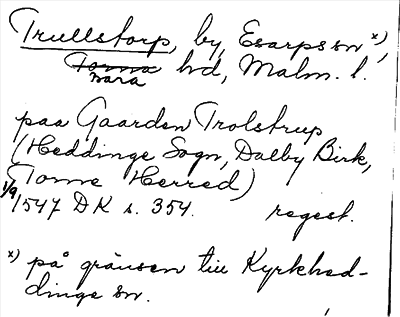 Trullstorp, by, Esarps sn x),
Torna hd, Malm. l.
Bara
paa Gaarden Trolstrup
(Heddinge Sogn, Dalby Birk,
Torne Herred)
1/9 1547 DK s. 354. regest.
x) på gränsen till Kyrkhed-
dinge sn.